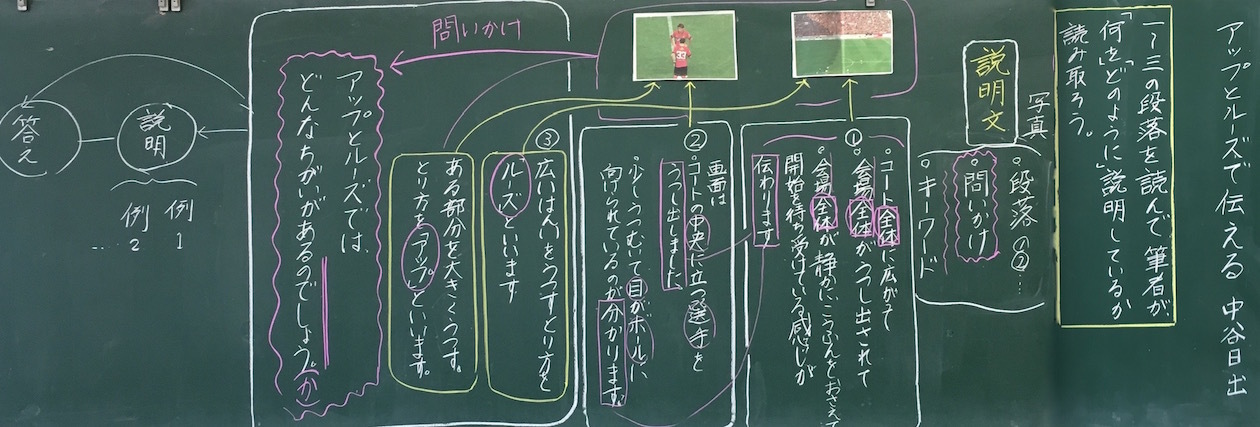 アップとルーズで伝える 中谷日出
一～三の段落を読んで筆者が
「何を」「どのように」説明しているか
読み取ろう。
写真
説明文
・段落①②…
・問いかけ
・キーワード
①
・コート全体に広がって
・会場全体がうつし出されて
・会場全体が静かにこうふんをおさえて
開始を待ち受けている感じが
伝わります
②
画面は
・コートの中央に立つ選手を
うつし出しました
・少しうつむいて目がボールに
向けられているのが分かります。
③
広いはんいをうつすとり方を
「ルーズ」といいます
ある部分を大きくうつす。
とり方を「アップ」といいます。
問いかけ
アップとルーズでは、
どんなちがいがあるのでしょう。(か)
説明
例1
例2
……
答え